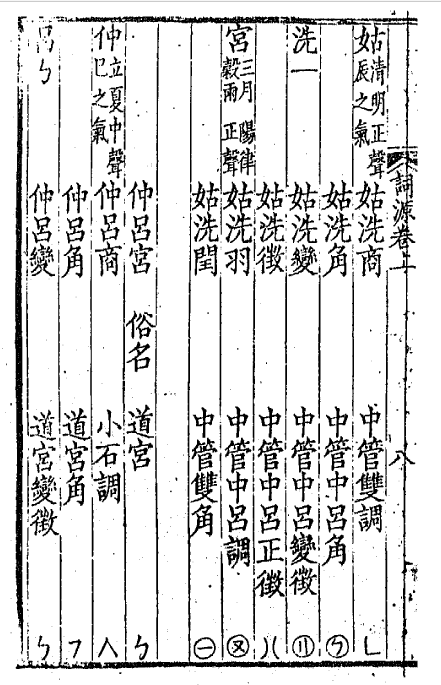 詞源卷上 八
姑 清明正聲 辰之氣 姑洗商 中管雙調
姑洗角 中管中呂角
洗一 姑洗變 中管中呂變徵
姑洗徵 中管中呂正徵
宮 三月 陽律 穀雨 正聲 姑洗羽 中管中呂調
姑洗閏 中管雙角 ㊀
仲呂宮 俗名 道宮 ㄣ
仲 立夏中聲 巳之氣 仲呂商 小石調 人
仲呂角 道宮角 フ
呂ㄣ 仲呂變 道宮變徵 ㄣ